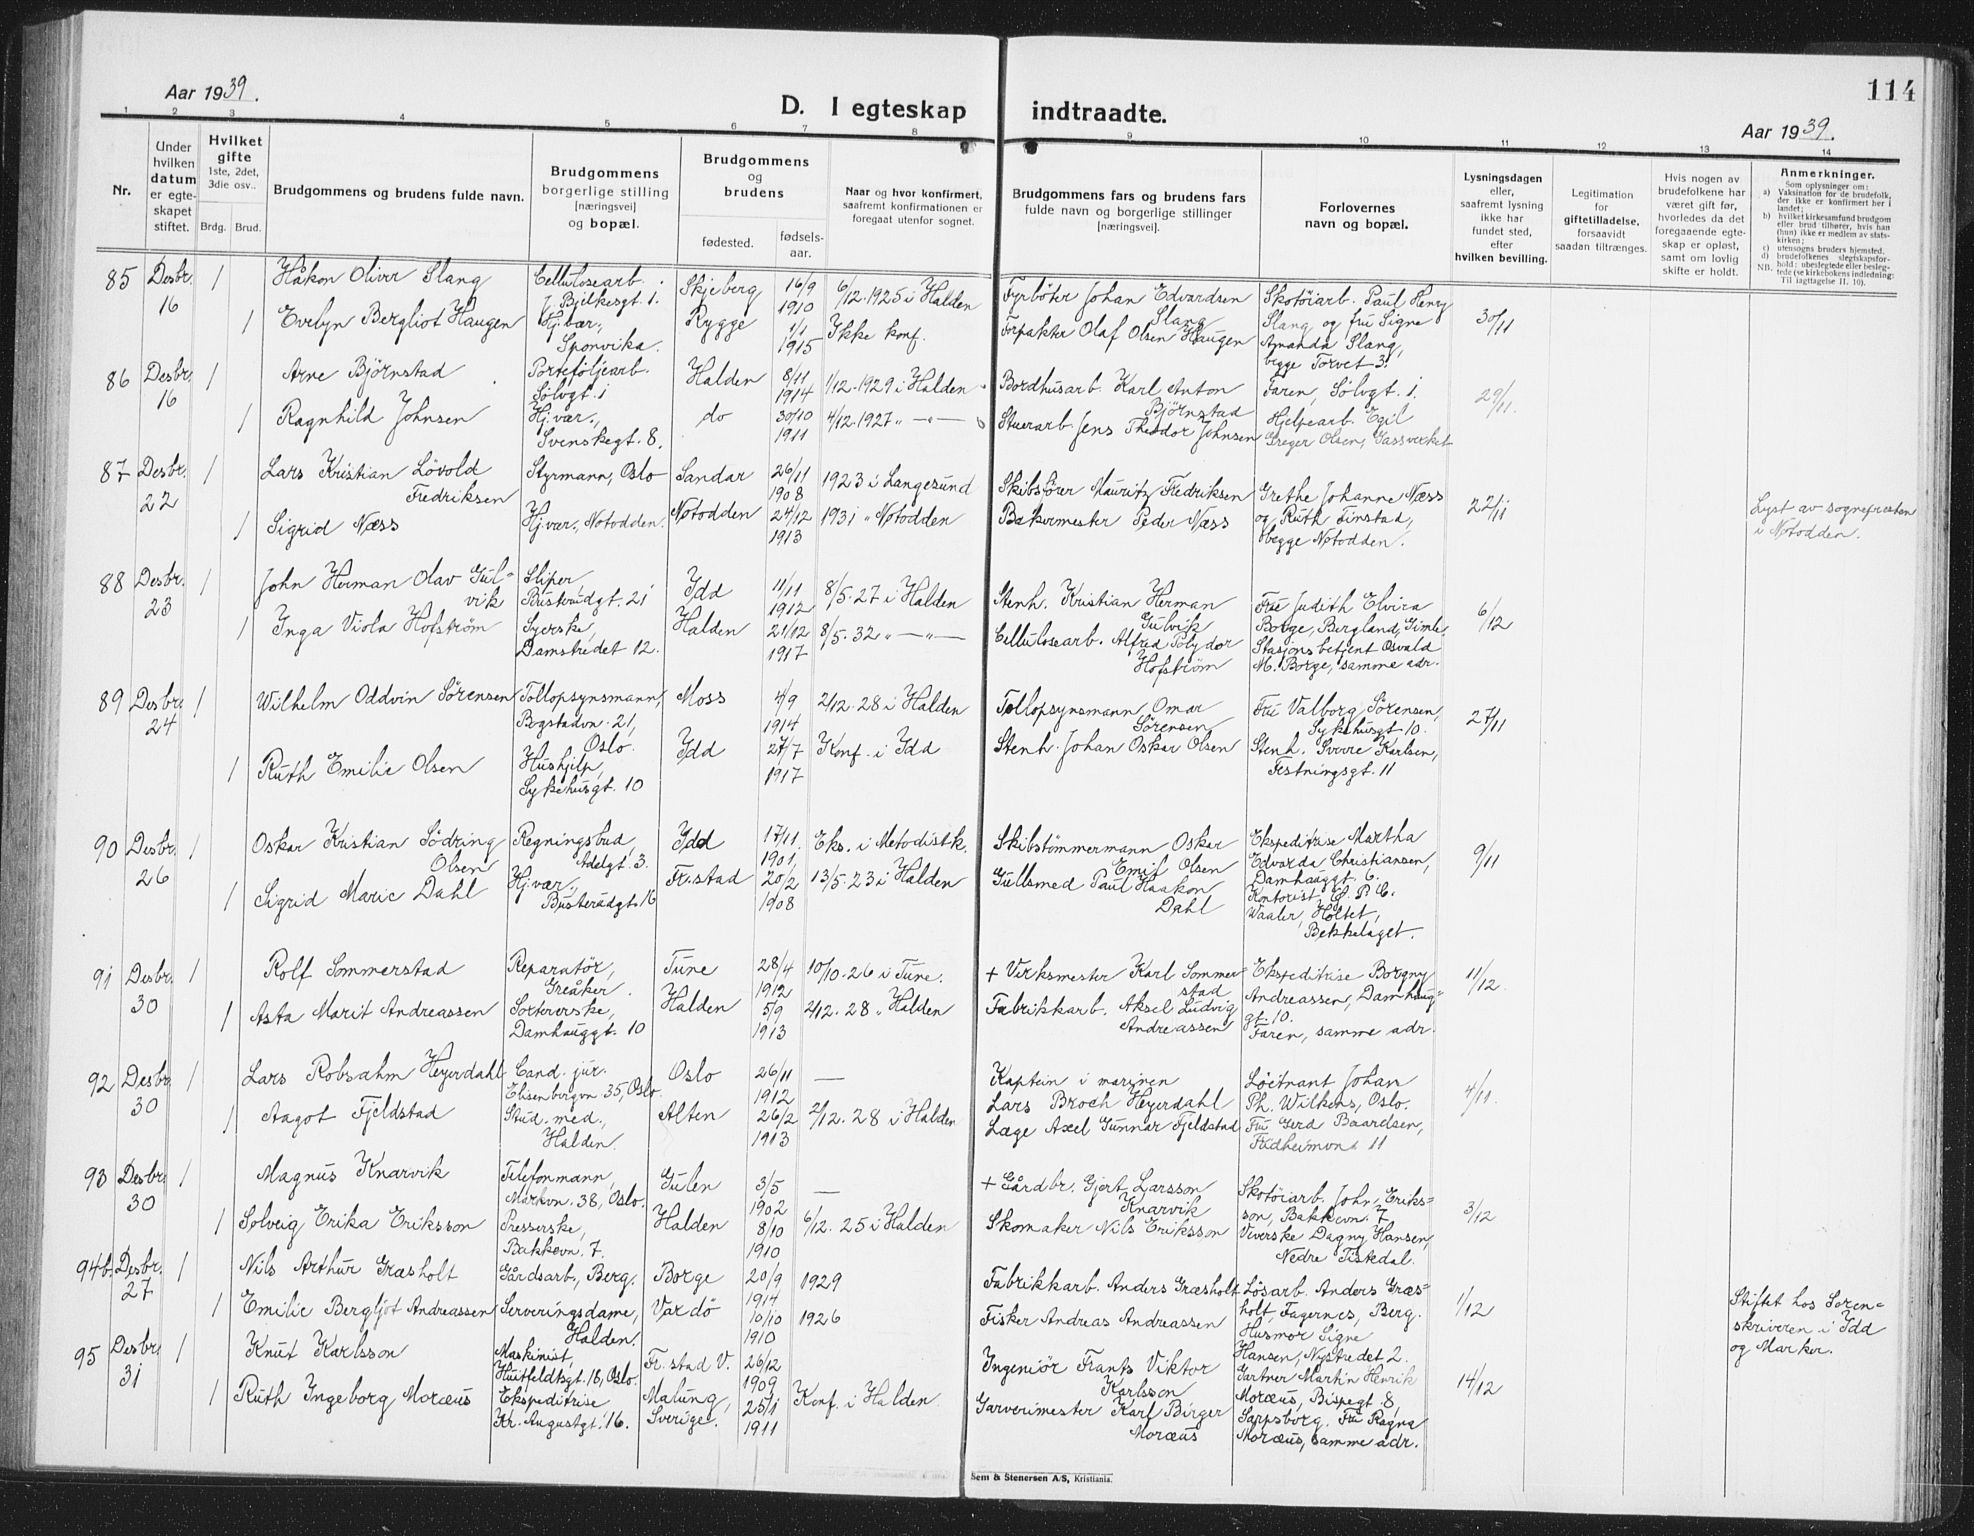 114
Aar 1939.
D. I egteskap indtraadte.
Aar 1939.
1 2 3 4 5 6 7 8 9 10 11 12 13 14
Nr.
Under
hvilken
datum
er egte-
skapet
stiftet.
Hvilket
gifte
1ste, 2det,
3die osv..
Brdg. Brud.
Brudgommens og brudens fulde navn.
Brudgommens
borgerlige stilling
[næringsvei]
og bopæl.
Brudgommens
og
brudens
fødested.
fødsels-
aar.
Naar og hvor konfirmert,
saafremt konfirmationen er
foregaat utenfor sognet.
Brudgommens fars og brudens fars
fulde navn og borgerlige stillinger
[næringsvei].
Forlovernes
navn og bopæl.
Lysningsdagen
eller,
saafremt lysning
ikke har
fundet sted,
efter
hvilken bevilling.
Legitimation
for
giftetilladelse,
forsaavidt
saadan tiltrænges.
Hvis nogen av
brudefolkene har
været gift før,
hvorledes da det
foregaaende egte-
skap er opløst,
samt om lovlig
skifte er holdt.
Anmerkninger.
Som oplysninger om:
a) Vaksination for de brudefolk,
der ikke er konfirmert her i
landet;
b) hvilket kirkesamfund brudgom
eller brud tilhører, hvis han
(hun) ikke er medlem av stats-
kirken;
c) utensogns bruders hjemsted.
d) brudefolkenes slegtskapsfor-
hold: ubeslegtede eller besleg-
tede (se kirkebokens indledning:
NB. Til iagttagelse II. 10).
85 Desbr. 16
1 Håkon Oliver Slang
Cellulosearb.
J. Bjelkesgt. 1.
Skjeberg 16/9 1910
6/12. 1925 i Halden
Fyrbøter Johan Edvardsen
Slang
Skotøiarb. Paul Henry
Slang og fru Signe
Amanda Slang,
begge Torvet 3.
30/11
1 Evelyn Bergliot Haugen
Hj.vær.,
Sponvika.
Rygge 1/1 1915
Ikke konf.
Forpakter Olaf Olsen Haugen
86 Desbr. 16
1 Arne Bjørnstad
Porteføljearb.
Sølvgt. 1
Halden 8/11 1914
1/12. 1929 i Halden
Bordhusarb. Karl Anton
Bjørnstad
Faren, Sølvgt. 1.
Hjelpearb. Egil
Greger Olsen, Gassverket
29/11.
1 Ragnhild Johnsen
Hj.vær.,
Svenskegt. 8.
do 30/10 1911
4/12. 1927 " — " —
Stuerarb. Jens Theodor Johnsen
87 Desbr. 22
1 Lars Kristian Lövold
Fredriksen
Styrmann, Oslo
Sandar 26/11 1908
1923 i Langesund
Skibsfører Mauritz Fredriksen
Grethe Johanne Næss
og Ruth Finstad,
begge Notodden.
22/11
Lyst av sognepresten
i Notodden.
1 Sigrid Næss
Hj.vær., Notodden.
Notodden 24/12 1913
1931 " Notodden
Bakermester Peder Næss
88 Desbr. 23
1 John Herman Olav Gul-
vik
Sliper,
Busterudgt. 21
Idd 11/11 1912
8/5. 27 i Halden
Stenh. Kristian Herman
Gulvik
Fru Judith Elvira
Borge, Bergland, Gimle.
Stasjonsbetjent Osvald
M. Borge, samme adr.
6/12
1 Inga Viola Hofstrøm
Syerske,
Damstredet 12.
Halden 21/12 1917
8/5. 32 " — " —
Cellulosearb. Alfred Polydor
Hofstrøm
89 Desbr. 24
1 Wilhelm Oddvin Sörensen
Tollopsynsmann,
Bogstadvn. 21,
Oslo.
Moss 4/9 1914
2/12. 28 i Halden
Tollopsynsmann Omar
Sörensen
Fru Valborg Sörensen,
Sykehusgt. 10.
Stenh. Sverre Karlsen,
Festningsgt. 11
27/11
1 Ruth Emilie Olsen
Hushjelp,
Sykehusgt. 10
Idd 27/7 1917
Konf. i Idd
Stenh. Johan Oskar Olsen
90 Desbr. 26
1 Oskar Kristian Södring
Olsen
Regningsbud,
Adelgt. 3.
Idd 17/11 1901,
Eks. i Metodistk.
Skibstömmermann Oskar
Emil Olsen
Ekspeditrise Martha
Edvarda Christiansen,
Damhauggt. 6.
Kontorist O. P. C.
Waaler, Holtet,
Bekkelaget.
9/11
1 Sigrid Marie Dahl
Hj.vær.,
Busterudgt. 16
Fr.stad 20/2 1908
13/5. 23 i Halden
Gullsmed Paul Haakon
Dahl
91 Desbr. 30
1 Rolf Sommerstad
Reparatör,
Greåker.
Tune 28/4 1912
10/10. 26 i Tune.
+ Verksmester Karl Sommer-
stad
Ekspeditrise Borgny
Andreassen, Damhaug-
gt. 10.
Faren, samme adr.
11/12
1 Asta Marit Andreassen
Sortererske,
Damhauggt. 10
Halden 5/9 1913
2/12. 28 " Halden
Fabrikkarb. Aksel Ludvig
Andreassen
92 Desbr. 30
1 Lars Robsahm Heyerdahl
Cand. jur.
Elisenbergvn 35, Oslo.
Oslo 26/11 1912
—
Kaptein i marinen
Lars Broch Heyerdahl
Löitnant Johan
Ph. Wilkens, Oslo.
Fru Gerd Baardsen,
Fredheimvn. 11
4/11.
1 Aagot Fjeldstad
Stud. med.,
Halden.
Alten 26/2 1913
2/12. 28 i Halden
Læge Axel Gunnar Fjeldstad
93 Desbr. 30
1 Magnus Knarvik
Telefonmann,
Markvn. 38, Oslo.
Gulen 3/5 1902
—
+ Gårdbr. Gjert Larsson
Knarvik
Skotöiarb. John Eriks-
son, Bakkevn. 7
Veverske Dagny Hansen,
Nedre Tistedal.
3/12
1 Solveig Erika Eriksson
Presserske,
Bakkevn. 7.
Halden 8/10 1910
6/12. 25 i Halden
Skomaker Nils Eriksson
94b. Desbr. 27
1 Nils Arthur Græsholt
Gårdsarb., Berg.
Borge 20/9 1914
1929
Fabrikkarb. Anders Græsholt
Lösarb. Anders Græs-
holt, Fagernes, Berg.
Husmor Signe
Hansen, Nystredet 2.
1/12
Stiftet hos Soren-
skriveren i Idd
og Marker.
1 Emilie Bergljot Andreassen
Serveringsdame,
Halden.
Vardö 10/10 1910
1926
Fisker Andreas Andreassen
95 Desbr. 31
1 Knut Karlsson
Maskinist,
Huitfeldtsgt. 18, Oslo.
Fr.stad V. 26/12 1909
Ingeniør Frants Viktor
Karlsson
Gartner Martin Henrik
Moræus, Bispegt. 8,
Sarpsborg. Fru Ragna
Moræus, samme adr.
14/12
1 Ruth Ingeborg Moræus
Ekspeditrise
Kr. Augustgt. 16.
Malung,
Sverige. 25/1 1911
Konf. i Halden.
Garverimester Karl Birger
Moræus
Sem & Stenersen A/S, Kristiania.